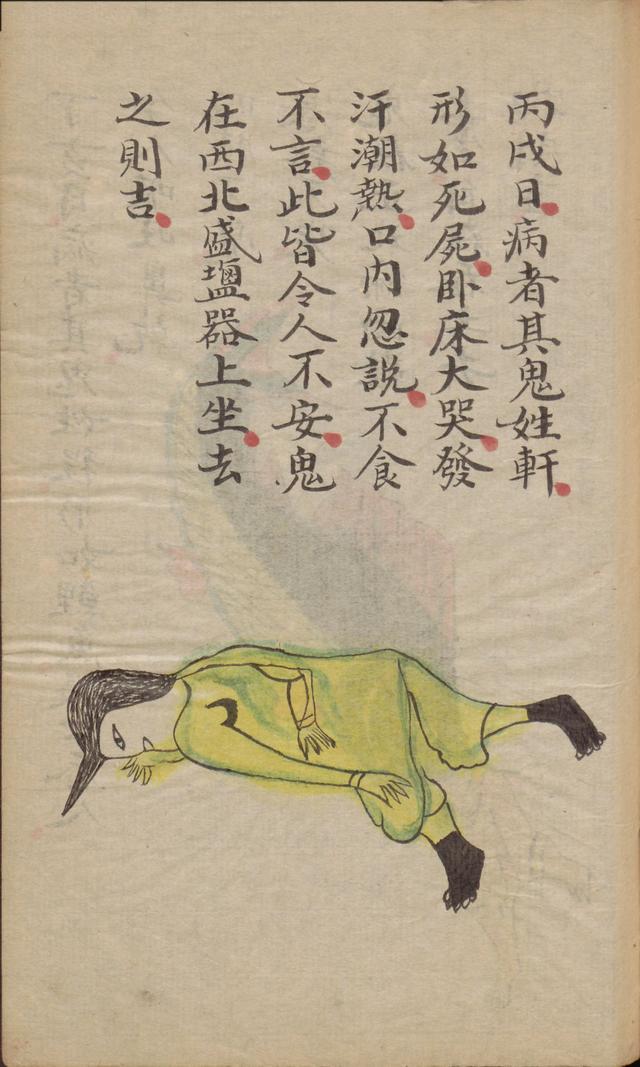 丙戌日病者其鬼姓軒
形如死屍卧床大哭發
汗潮熱口内忽説不食
不言此皆令人不安鬼
在西北盛塩器上坐去
之則吉